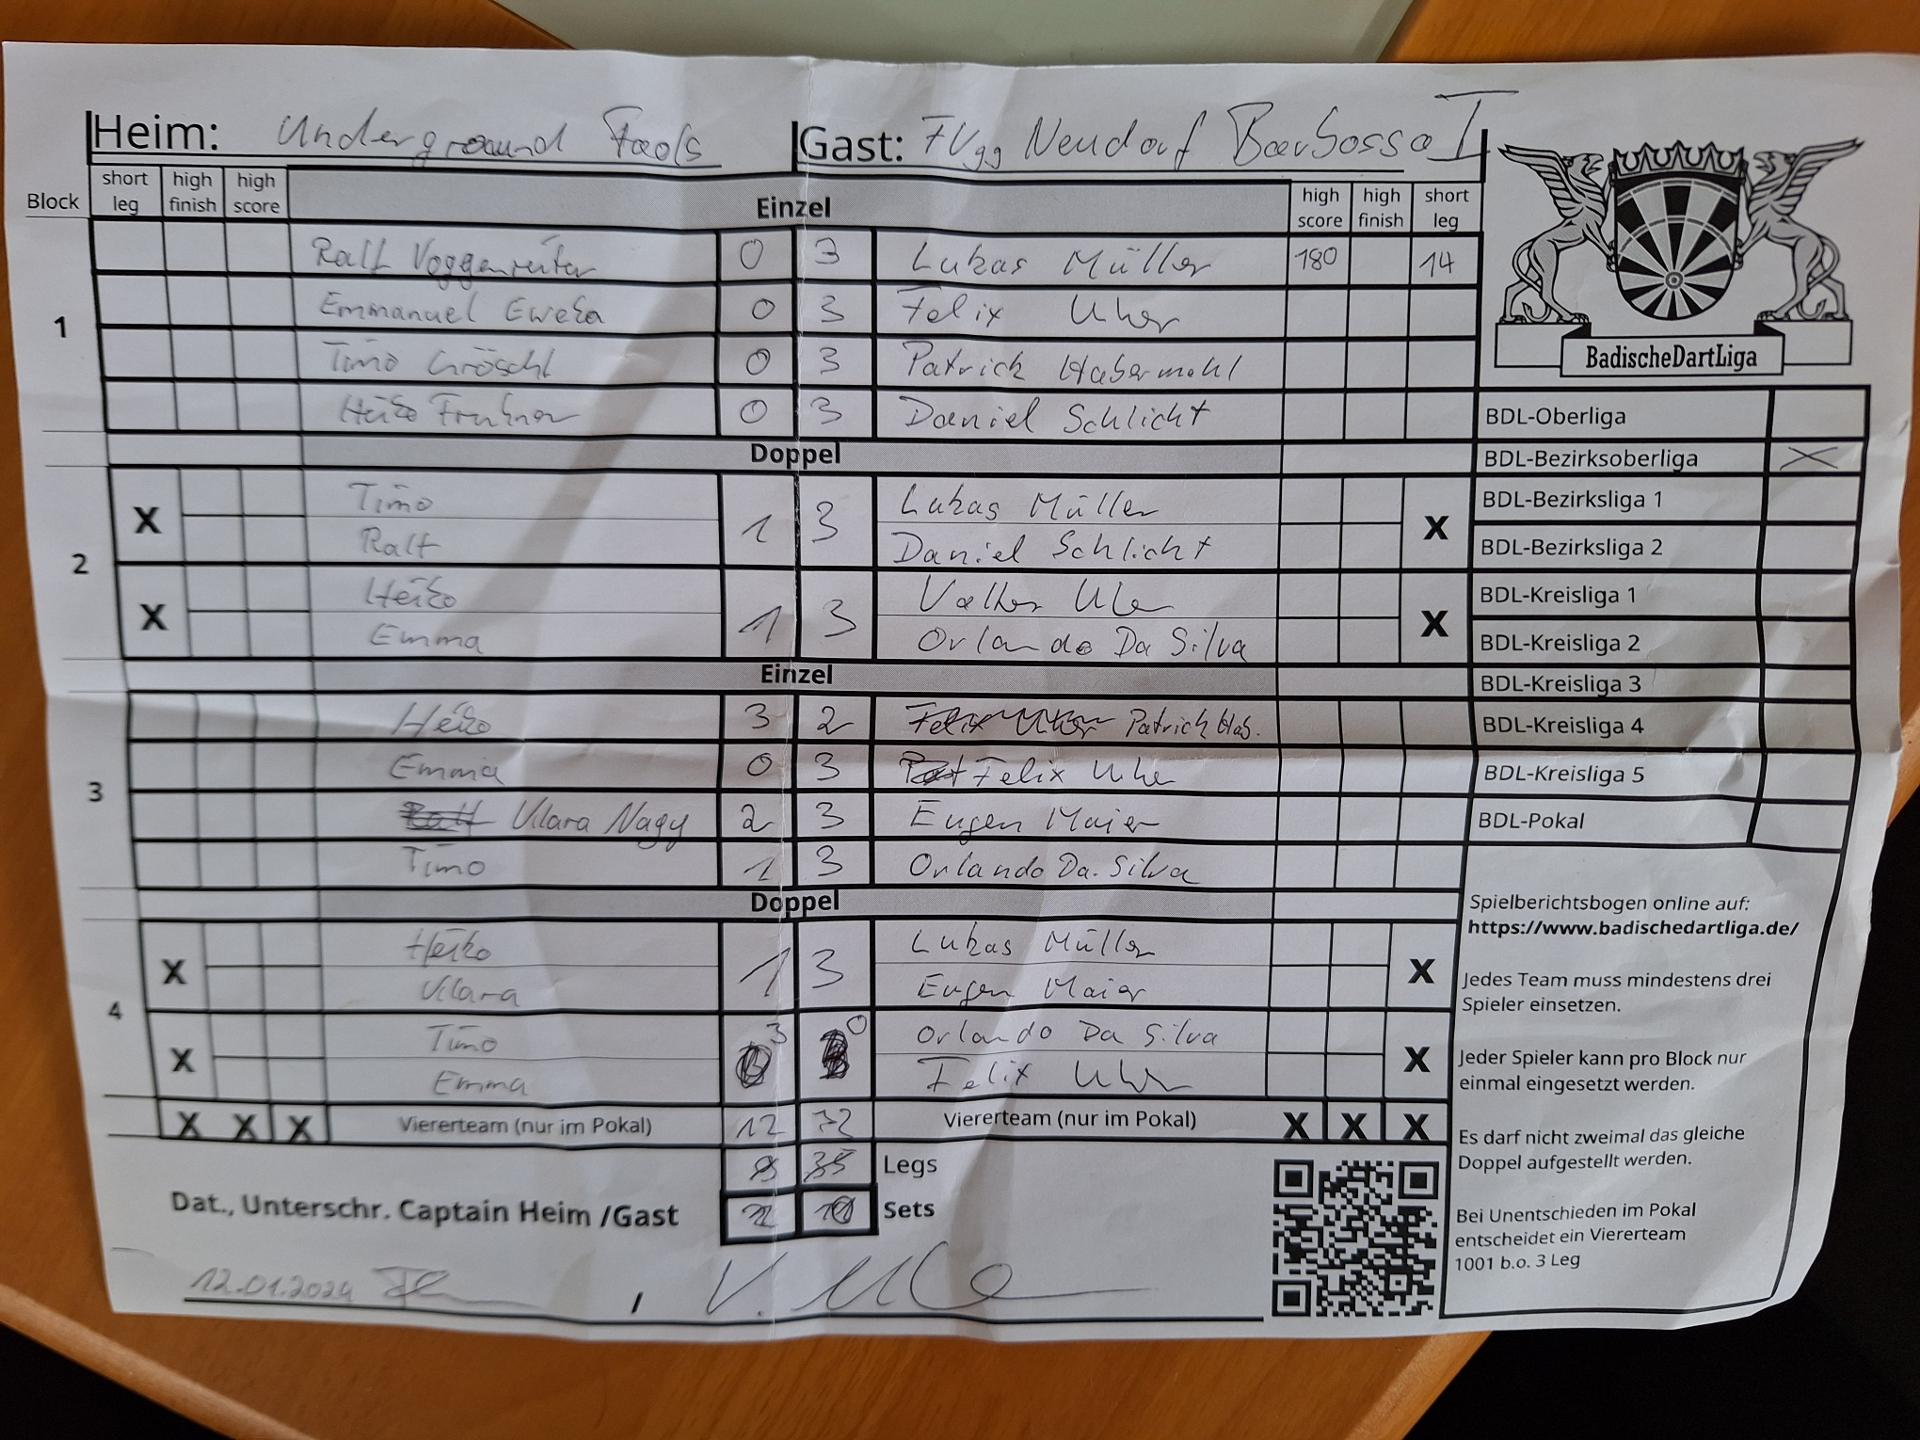 Heim: Underground Fools Gast: FVgg Neudorf Barbossa I
Block short leg high finish high score Einzel high score high finish short leg
1
Ralf Voggenreiter 0 3 Lukas Müller 180 14
Emmanuel Eweka 0 3 Felix Uher
Timo Gröschl 0 3 Patrick Habermehl
Heiko 0 3 Daniel Schlicht
Doppel
2
X Timo 1 3 Lukas Müller X
Ralf Daniel Schlicht
X Heiko 1 3 Volker Uher X
Emma Orlando Da Silva
Einzel
3
Heiko 3 2 Patrick Hab.
Emma 0 3 Felix Uher
Vilara Nagy 2 3 Eugen Maier
Timo 1 3 Orlando Da. Silva
Doppel
4
X Heiko 1 3 Lukas Müller X
Vilara Eugen Maier
X Timo 3 0 Orlando Da Silva X
Emma Felix Uher
X X X Viererteam (nur im Pokal) 12 Viererteam (nur im Pokal) X X X
Legs
Sets
Dat., Unterschr. Captain Heim /Gast
12.01.2024 /
BadischeDartLiga
BDL-Oberliga
BDL-Bezirksoberliga X
BDL-Bezirksliga 1
BDL-Bezirksliga 2
BDL-Kreisliga 1
BDL-Kreisliga 2
BDL-Kreisliga 3
BDL-Kreisliga 4
BDL-Kreisliga 5
BDL-Pokal
Spielberichtsbogen online auf:
https://www.badischedartliga.de/
Jedes Team muss mindestens drei
Spieler einsetzen.
Jeder Spieler kann pro Block nur
einmal eingesetzt werden.
Es darf nicht zweimal das gleiche
Doppel aufgestellt werden.
Bei Unentschieden im Pokal
entscheidet ein Viererteam
1001 b.o. 3 Leg